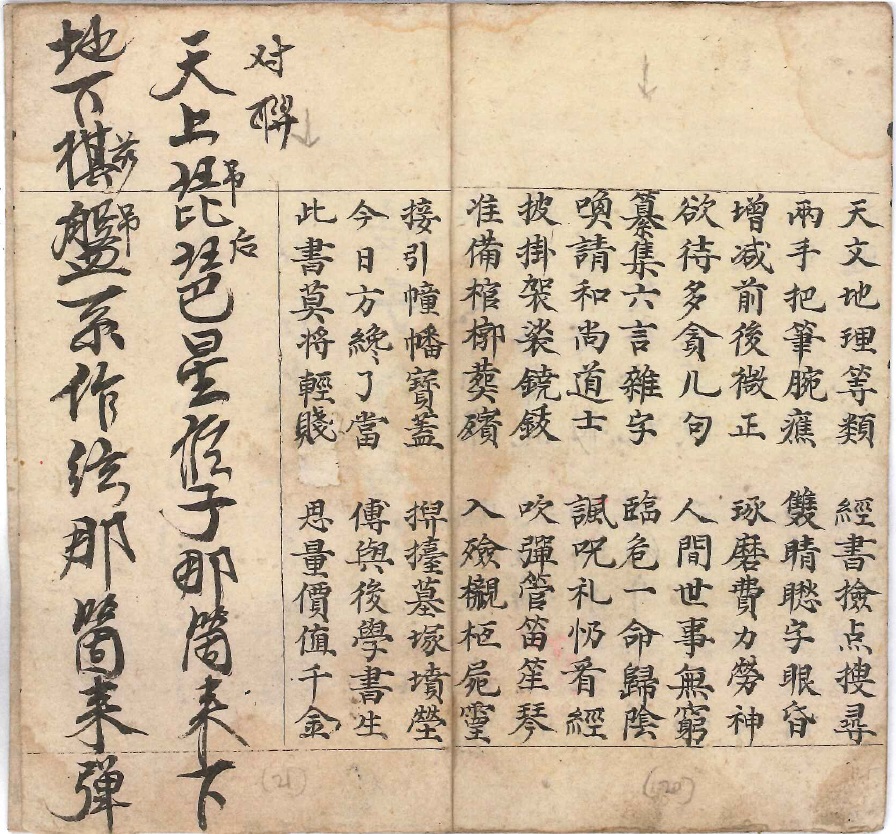 天文地理等類　經書撿点搜尋
兩手把筆腕癄　雙睛聦字眼昏
增减前後微正　琢磨費力勞神
欲待多貪儿句　人間世事無窮
纂集六言雜字　臨危一命歸陰
喚請和尚道士　諷呪礼忏看經
披掛袈裟鐃鈸　吹彈管笛笙琴
准備棺槨葬殯　入殮櫬柩屍靈
接引幢幡寳蓋　擡墓塚墳塋
今日方纔了當　傅與後學書生
此書莫將輕賤　思量價值千金
对聨
天上琵琶星作子那箇来下
吊后
地下棋盤系作弦那箇来弹
吊
(20)
(21)